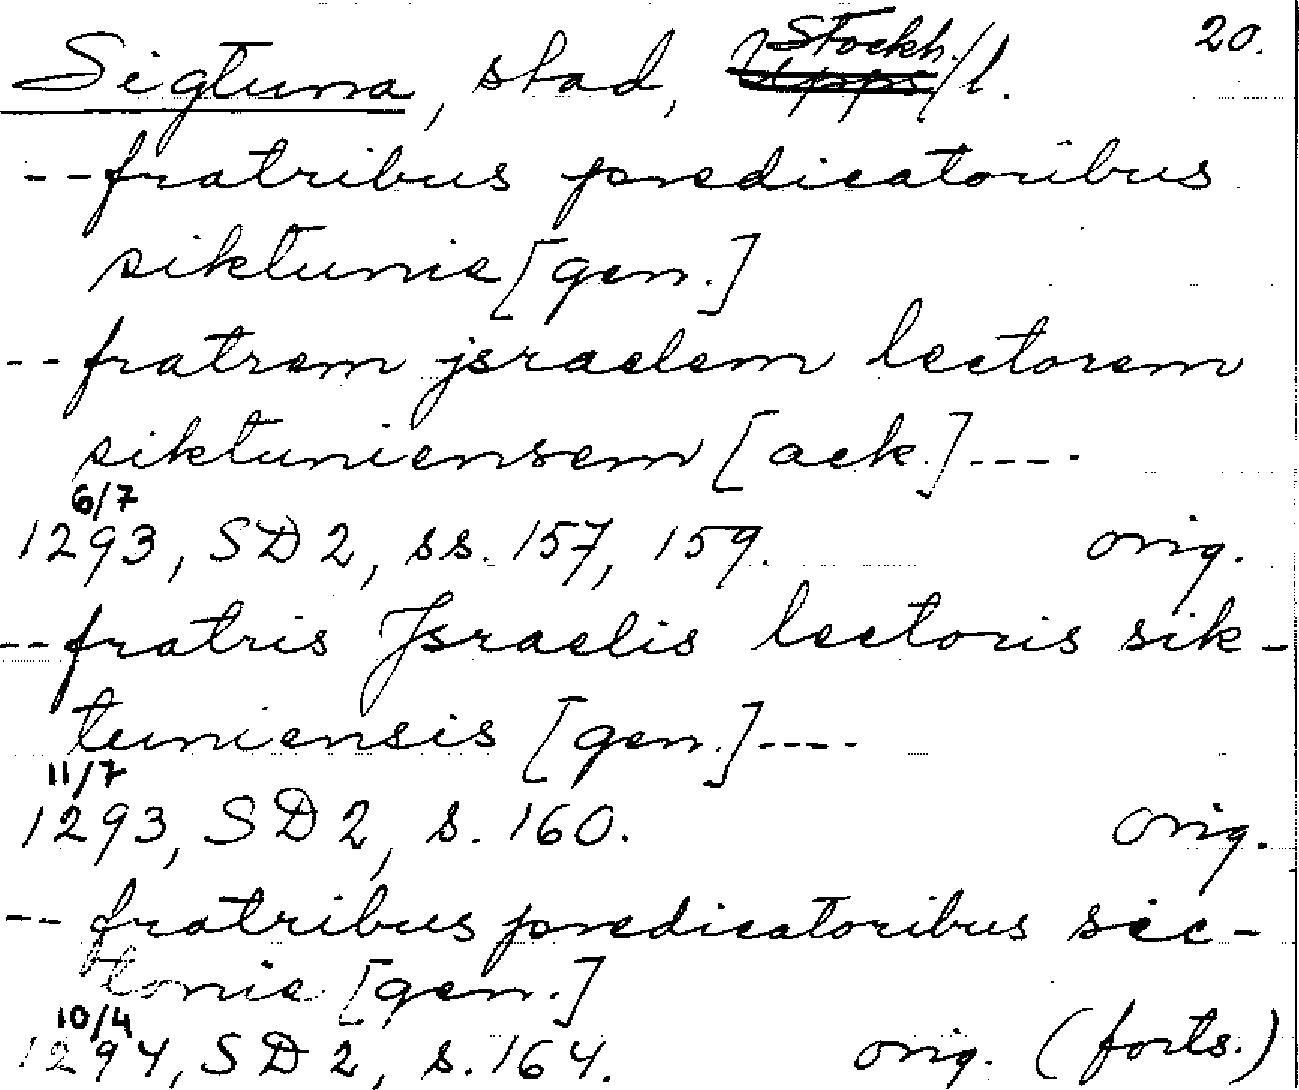 Sigtuna, stad, Stockh./l. 20.
--fratribus predicatoribus
siktunie [gen.]
--fratrem jsraelem lectorem
siktuniensem [ack.]----
6/7
1293, SD 2, ss. 157, 159. orig.
--fratris Jsraelis lectoris sik-
tuniensis [gen.]----
11/7
1293, SD 2, s. 160. orig.
-- fratribus predicatoribus sic-
tonie [gen.]
10/4
1294, SD 2, s. 164. orig. (forts.)